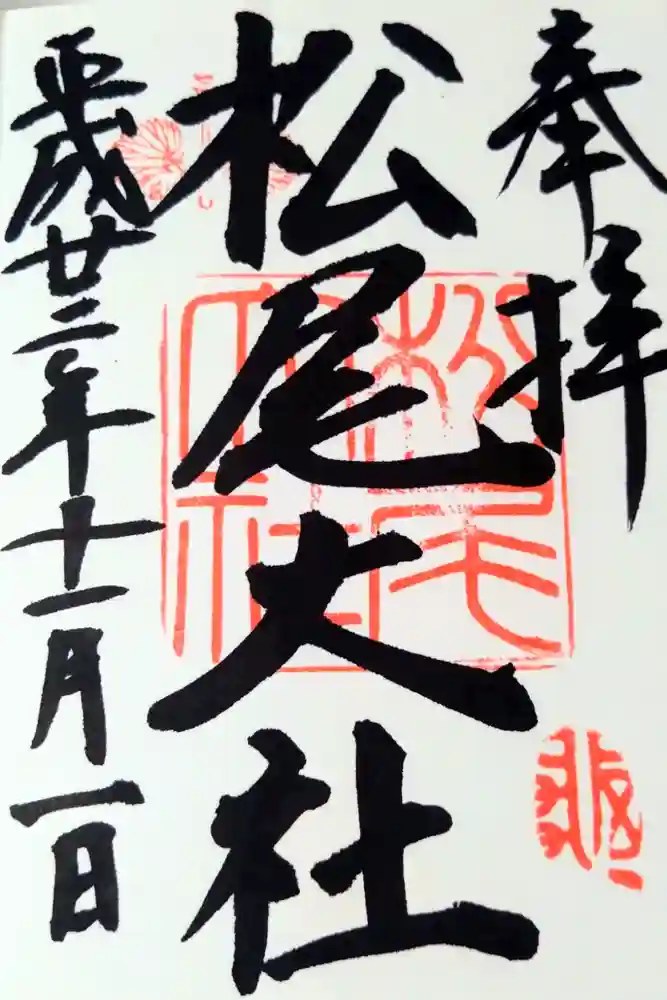 奉拝
松尾大社
平成廿二年十一月一日
松尾大社